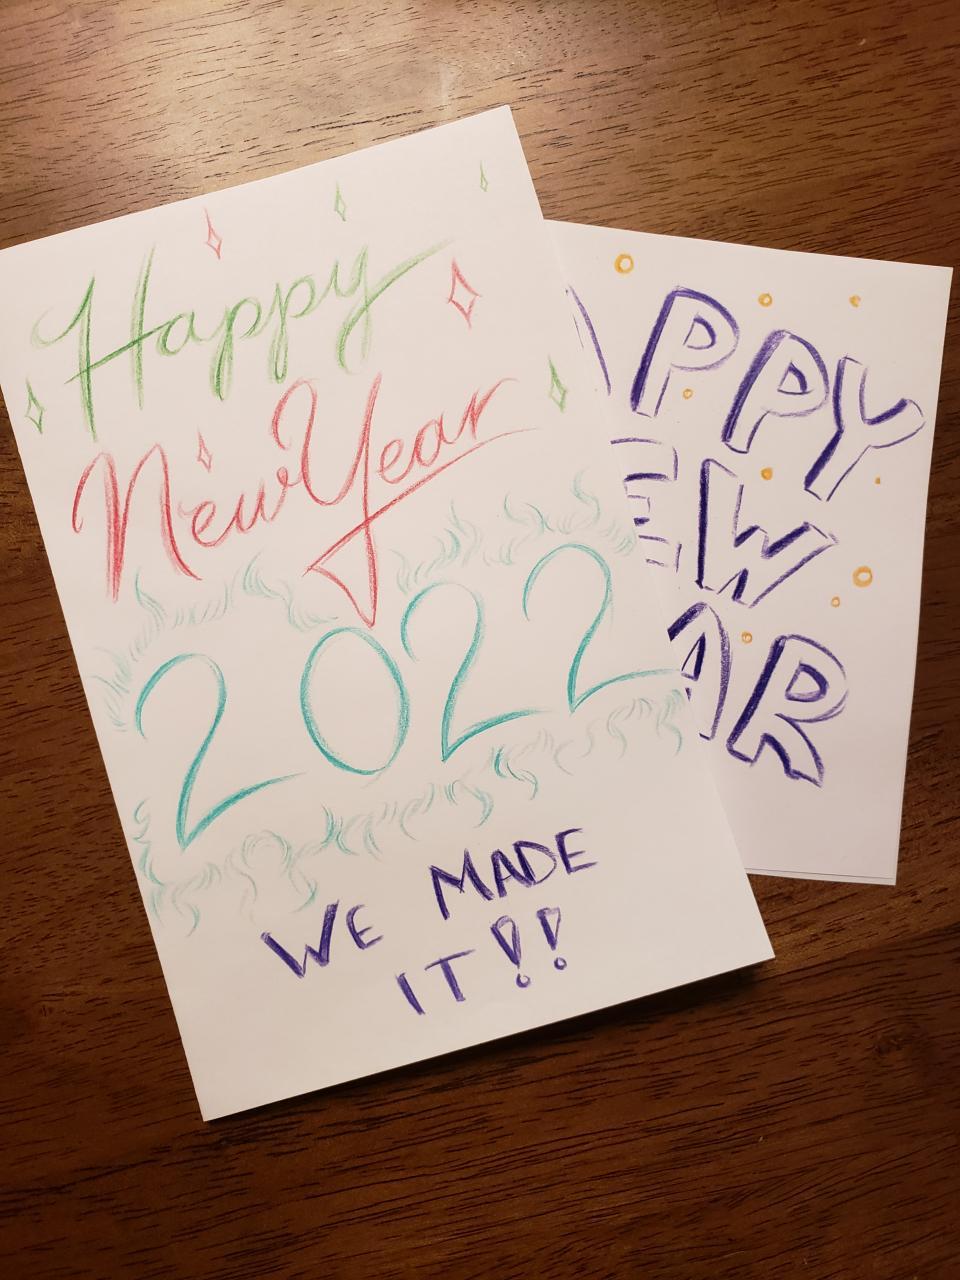 Happy
New Year
2022
WE MADE
IT!!
APPY
EW
AR